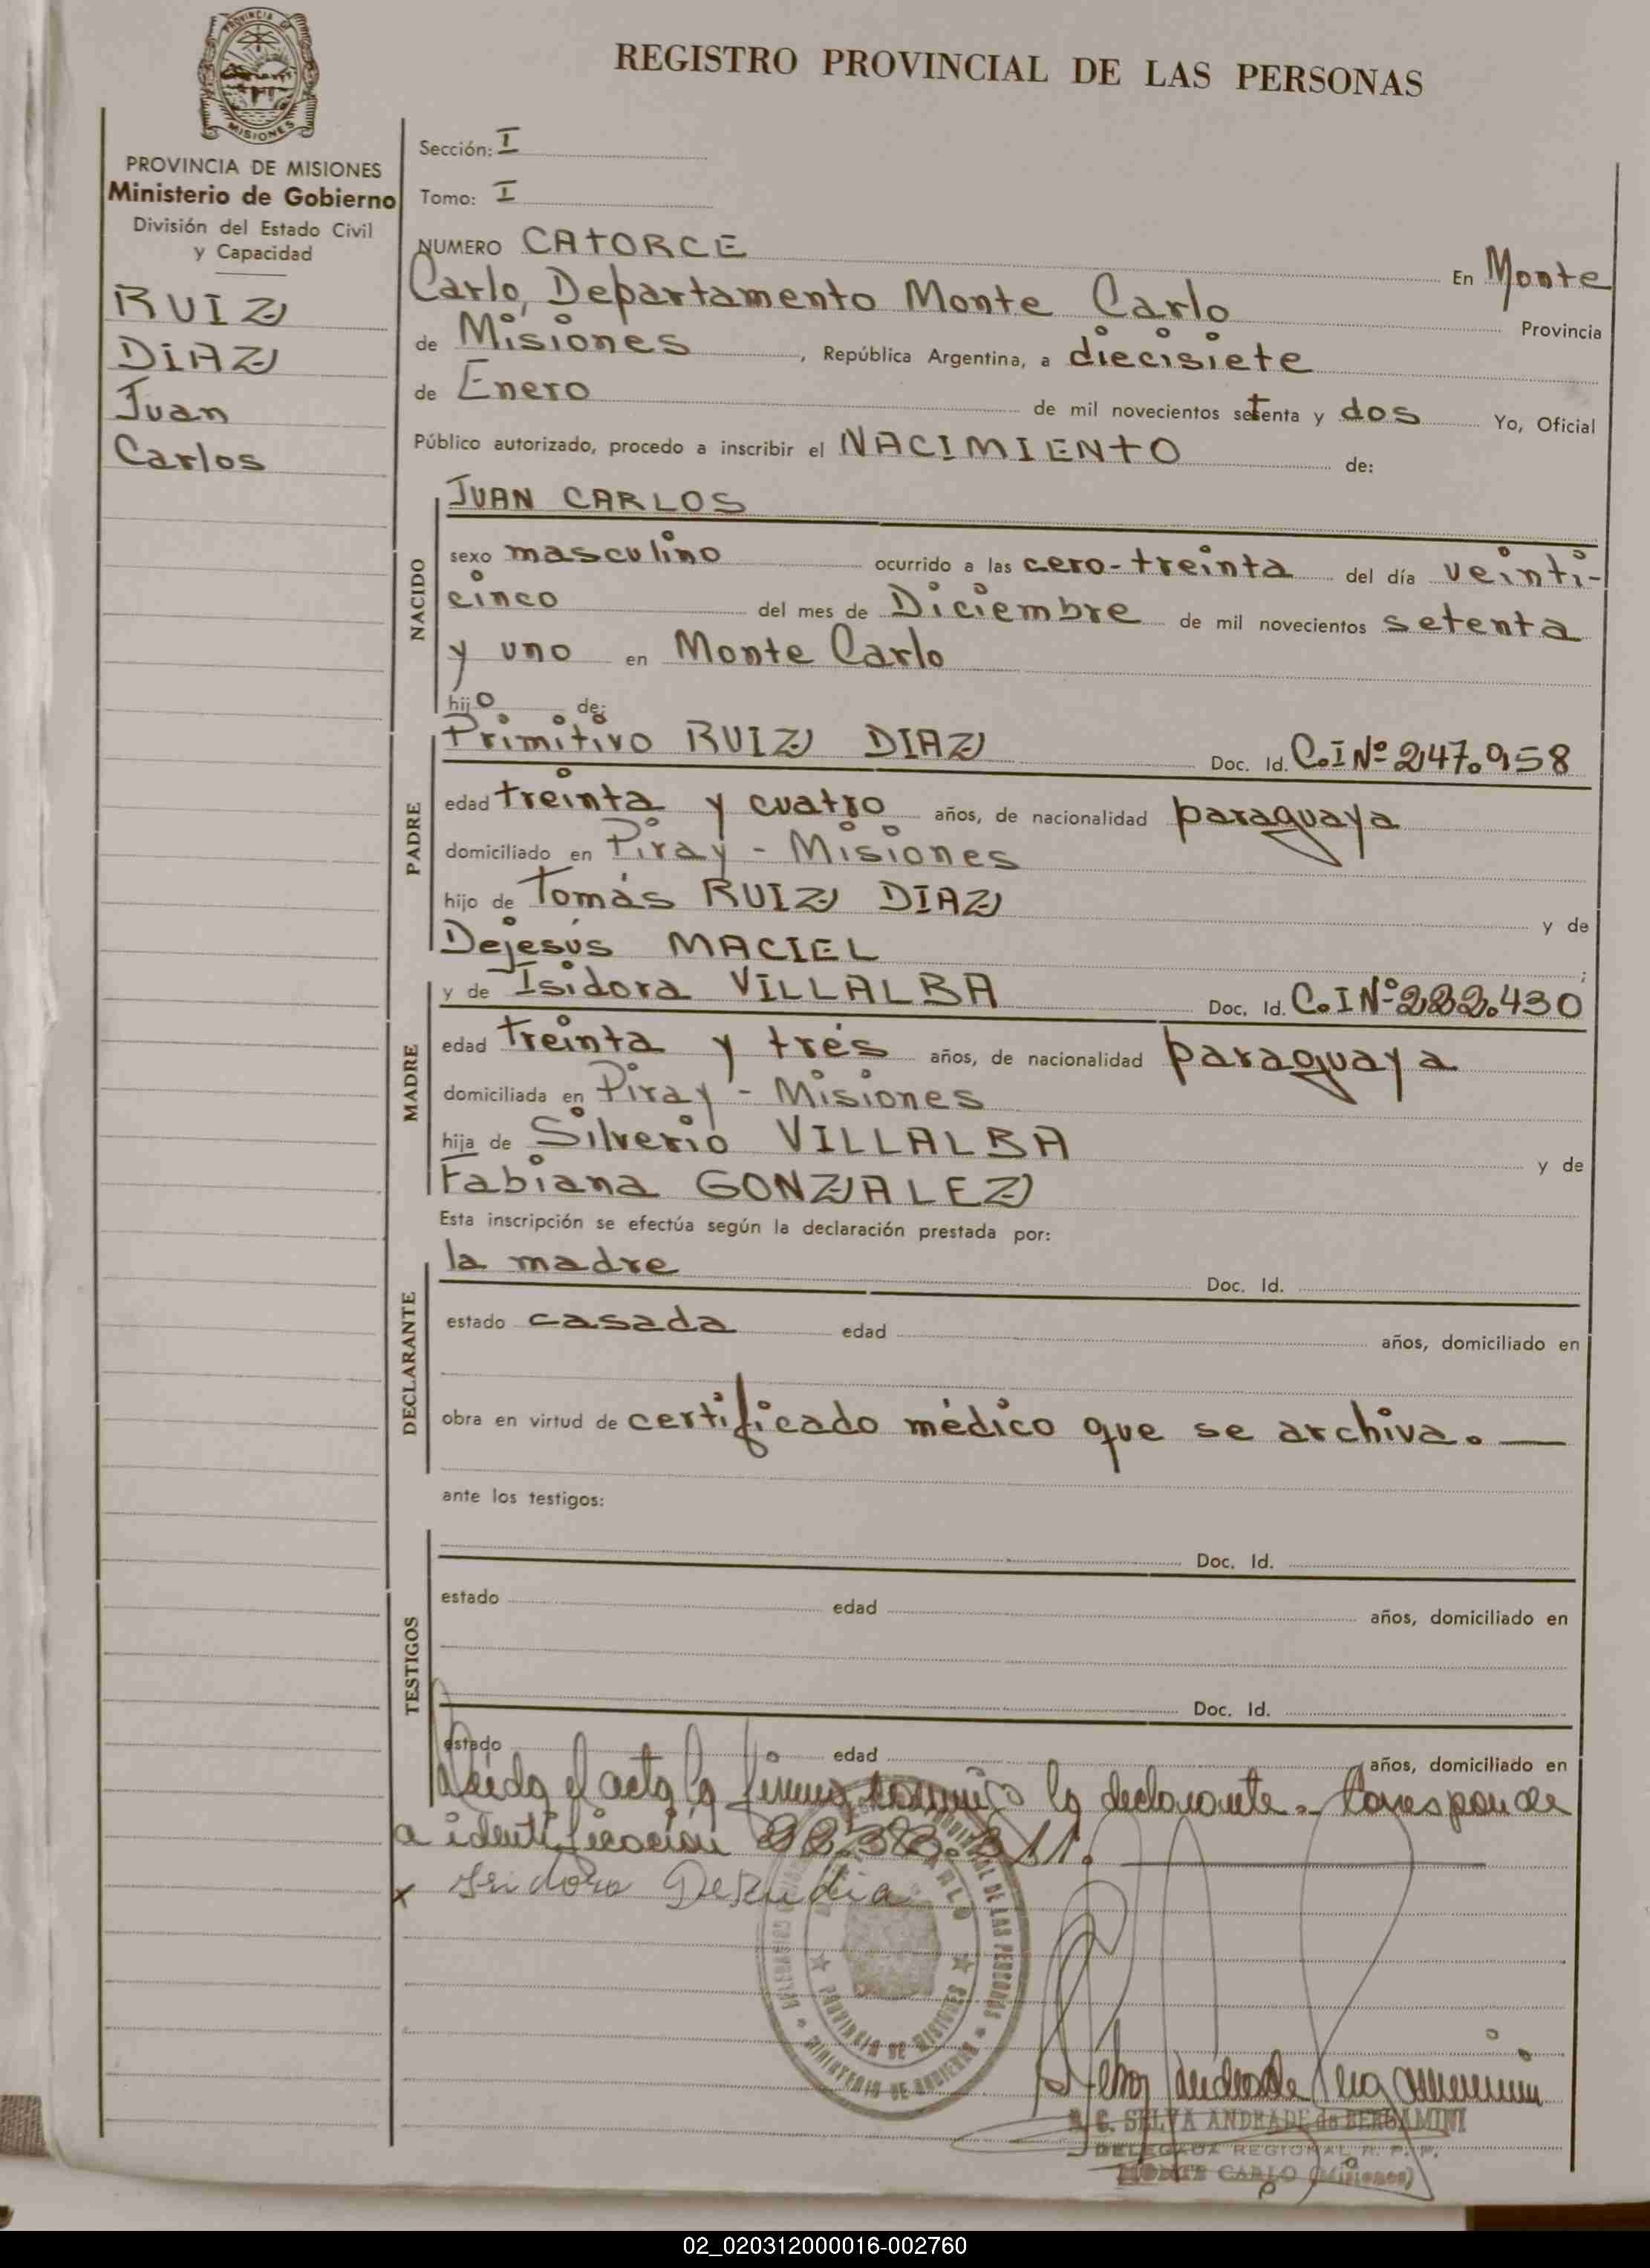 REGISTRO PROVINCIAL DE LAS PERSONAS
PROVINCIA DE MISIONES
Ministerio de Gobierno
División del Estado Civil
y Capacidad
RUIZ
DIAZ
Juan
Carlos
Sección: I
Tomo: I
NUMERO CATORCE En Monte
Carlo, Departamento Monte Carlo Provincia
de Misiones, República Argentina, a diecisiete
de Enero de mil novecientos setenta y dos Yo, Oficial
Público autorizado, procedo a inscribir el NACIMIENTO de:
NACIDO
JUAN CARLOS
sexo masculino ocurrido a las cero-treinta del día veinti-
cinco del mes de Diciembre de mil novecientos setenta
y uno en Monte Carlo
hijo de:
PADRE
Primitivo RUIZ DIAZ Doc. Id. C.I Nº 247.958
edad treinta y cuatro años, de nacionalidad paraguaya
domiciliado en Piray - Misiones
hijo de Tomás RUIZ DIAZ y de
Dejesús MACIEL ;
MADRE
y de Isidora VILLALBA Doc. Id. C.I Nº 222.430
edad treinta y tres años, de nacionalidad paraguaya
domiciliada en Piray - Misiones
hija de Silverio VILLALBA y de
Fabiana GONZALEZ
Esta inscripción se efectúa según la declaración prestada por:
DECLARANTE
la madre Doc. Id.
estado casada edad años, domiciliado en
obra en virtud de certificado médico que se archiva. —
ante los testigos:
TESTIGOS
Doc. Id.
estado edad años, domiciliado en
Doc. Id.
estado edad años, domiciliado en
Leída el acta la firma conmigo la declarante. Corresponde
a identificación
x
PROVINCIA DE MISIONES
MINISTERIO DE GOBIERNO
R. C. SELVA ANDRADE de BERGAMINI
DELEGADA REGIONAL R. P. P.
MONTE CARLO (Misiones)
02_020312000016-002760